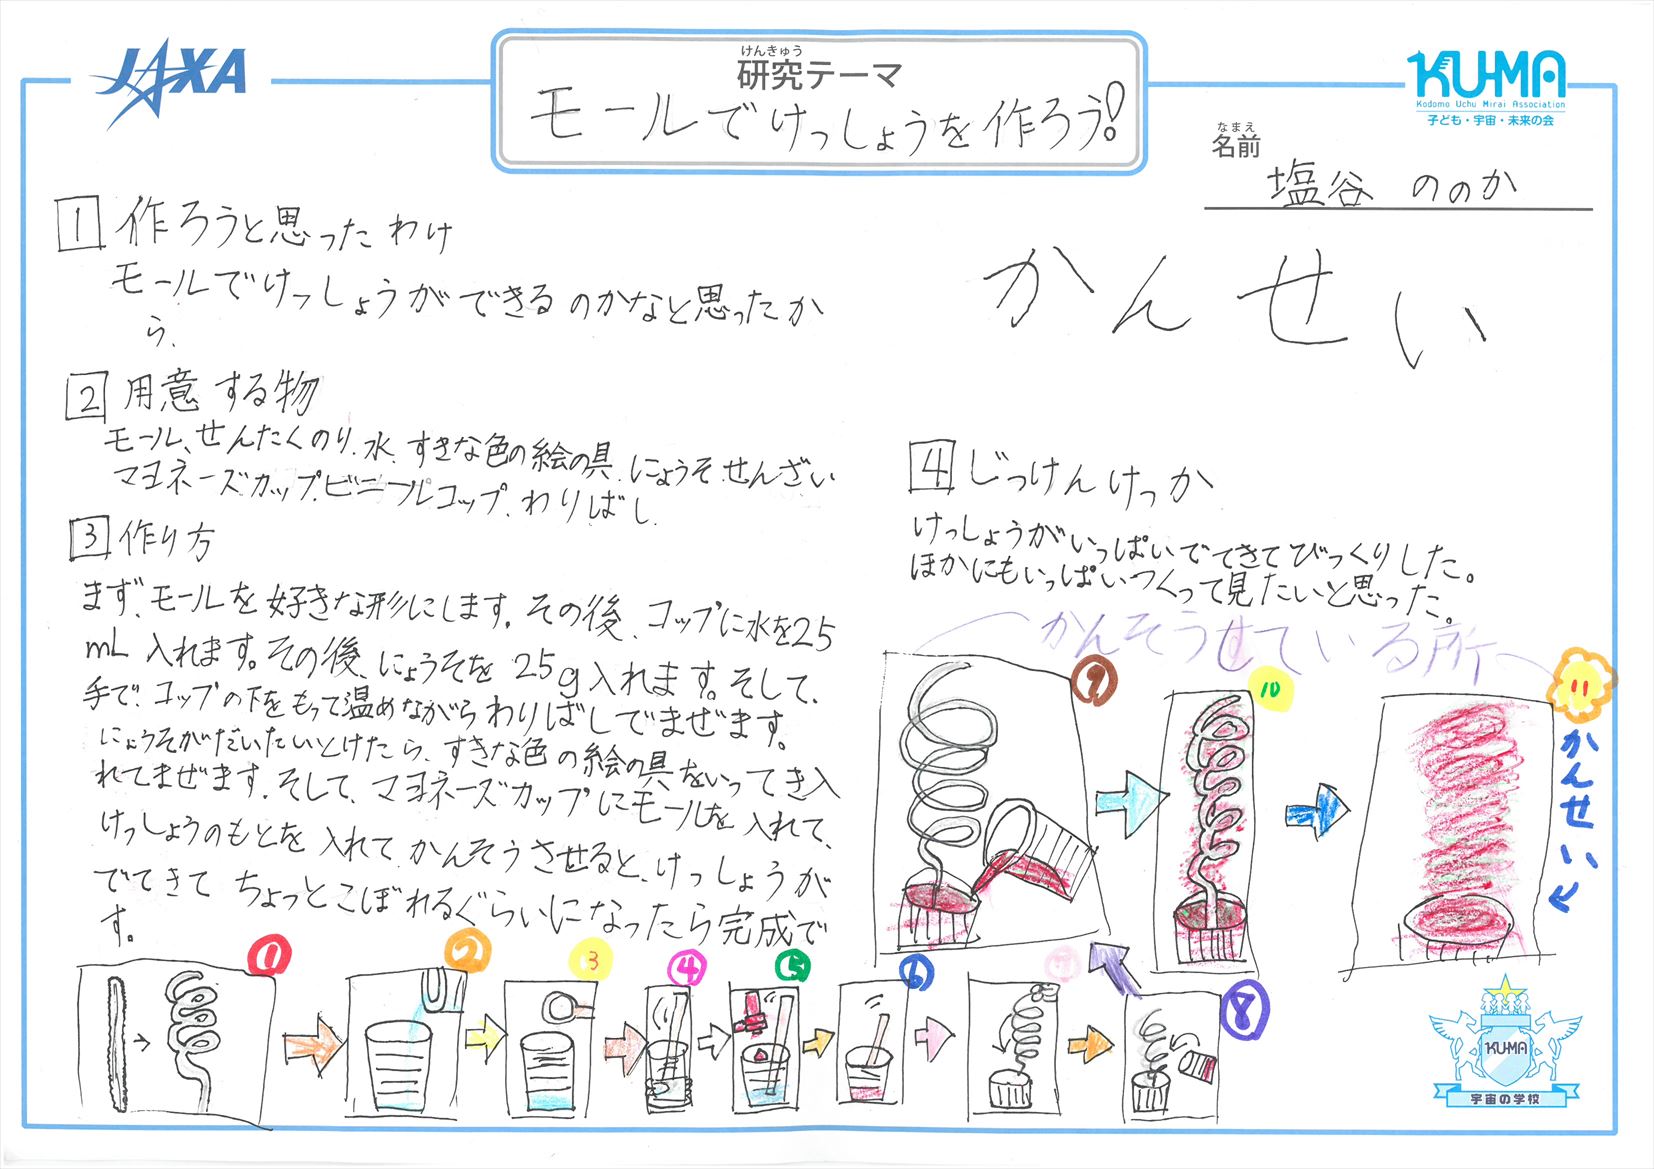 JAXA
けんきゅう
研究テーマ
モールでけっしょうを作ろう!
KU-MA
Kodomo Uchu Mirai Association
子ども・宇宙・未来の会
なまえ
名前
塩谷 ののか
1 作ろうと思ったわけ
モールでけっしょうができるのかなと思ったか
ら、
2 用意する物
モール、せんたくのり、水、すきな色の絵の具、にょうそ、せんざい
マヨネーズカップ、ビニールコップ、わりばし、
3 作り方
まず、モールを好きな形にします。その後、コップに水を25
mL入れます。その後、にょうそを25g入れます。そして、
手で、コップの下をもって温めながらわりばしでまぜます。
にょうそがだいたいとけたら、すきな色の絵の具をいってき入
れてまぜます。そして、マヨネーズカップにモールを入れて、
けっしょうのもとを入れて、かんそうさせると、けっしょうが
でてきてちょっとこぼれるぐらいになったら完成で
す。
かんせい
4 じっけんけっか
けっしょうがいっぱいでてきてびっくりした。
ほかにもいっぱいつくって見たいと思った。
かんそうせている所
1
2
3
4
5
6
7
8
9
10
11
かんせい
KU-MA
宇宙の学校